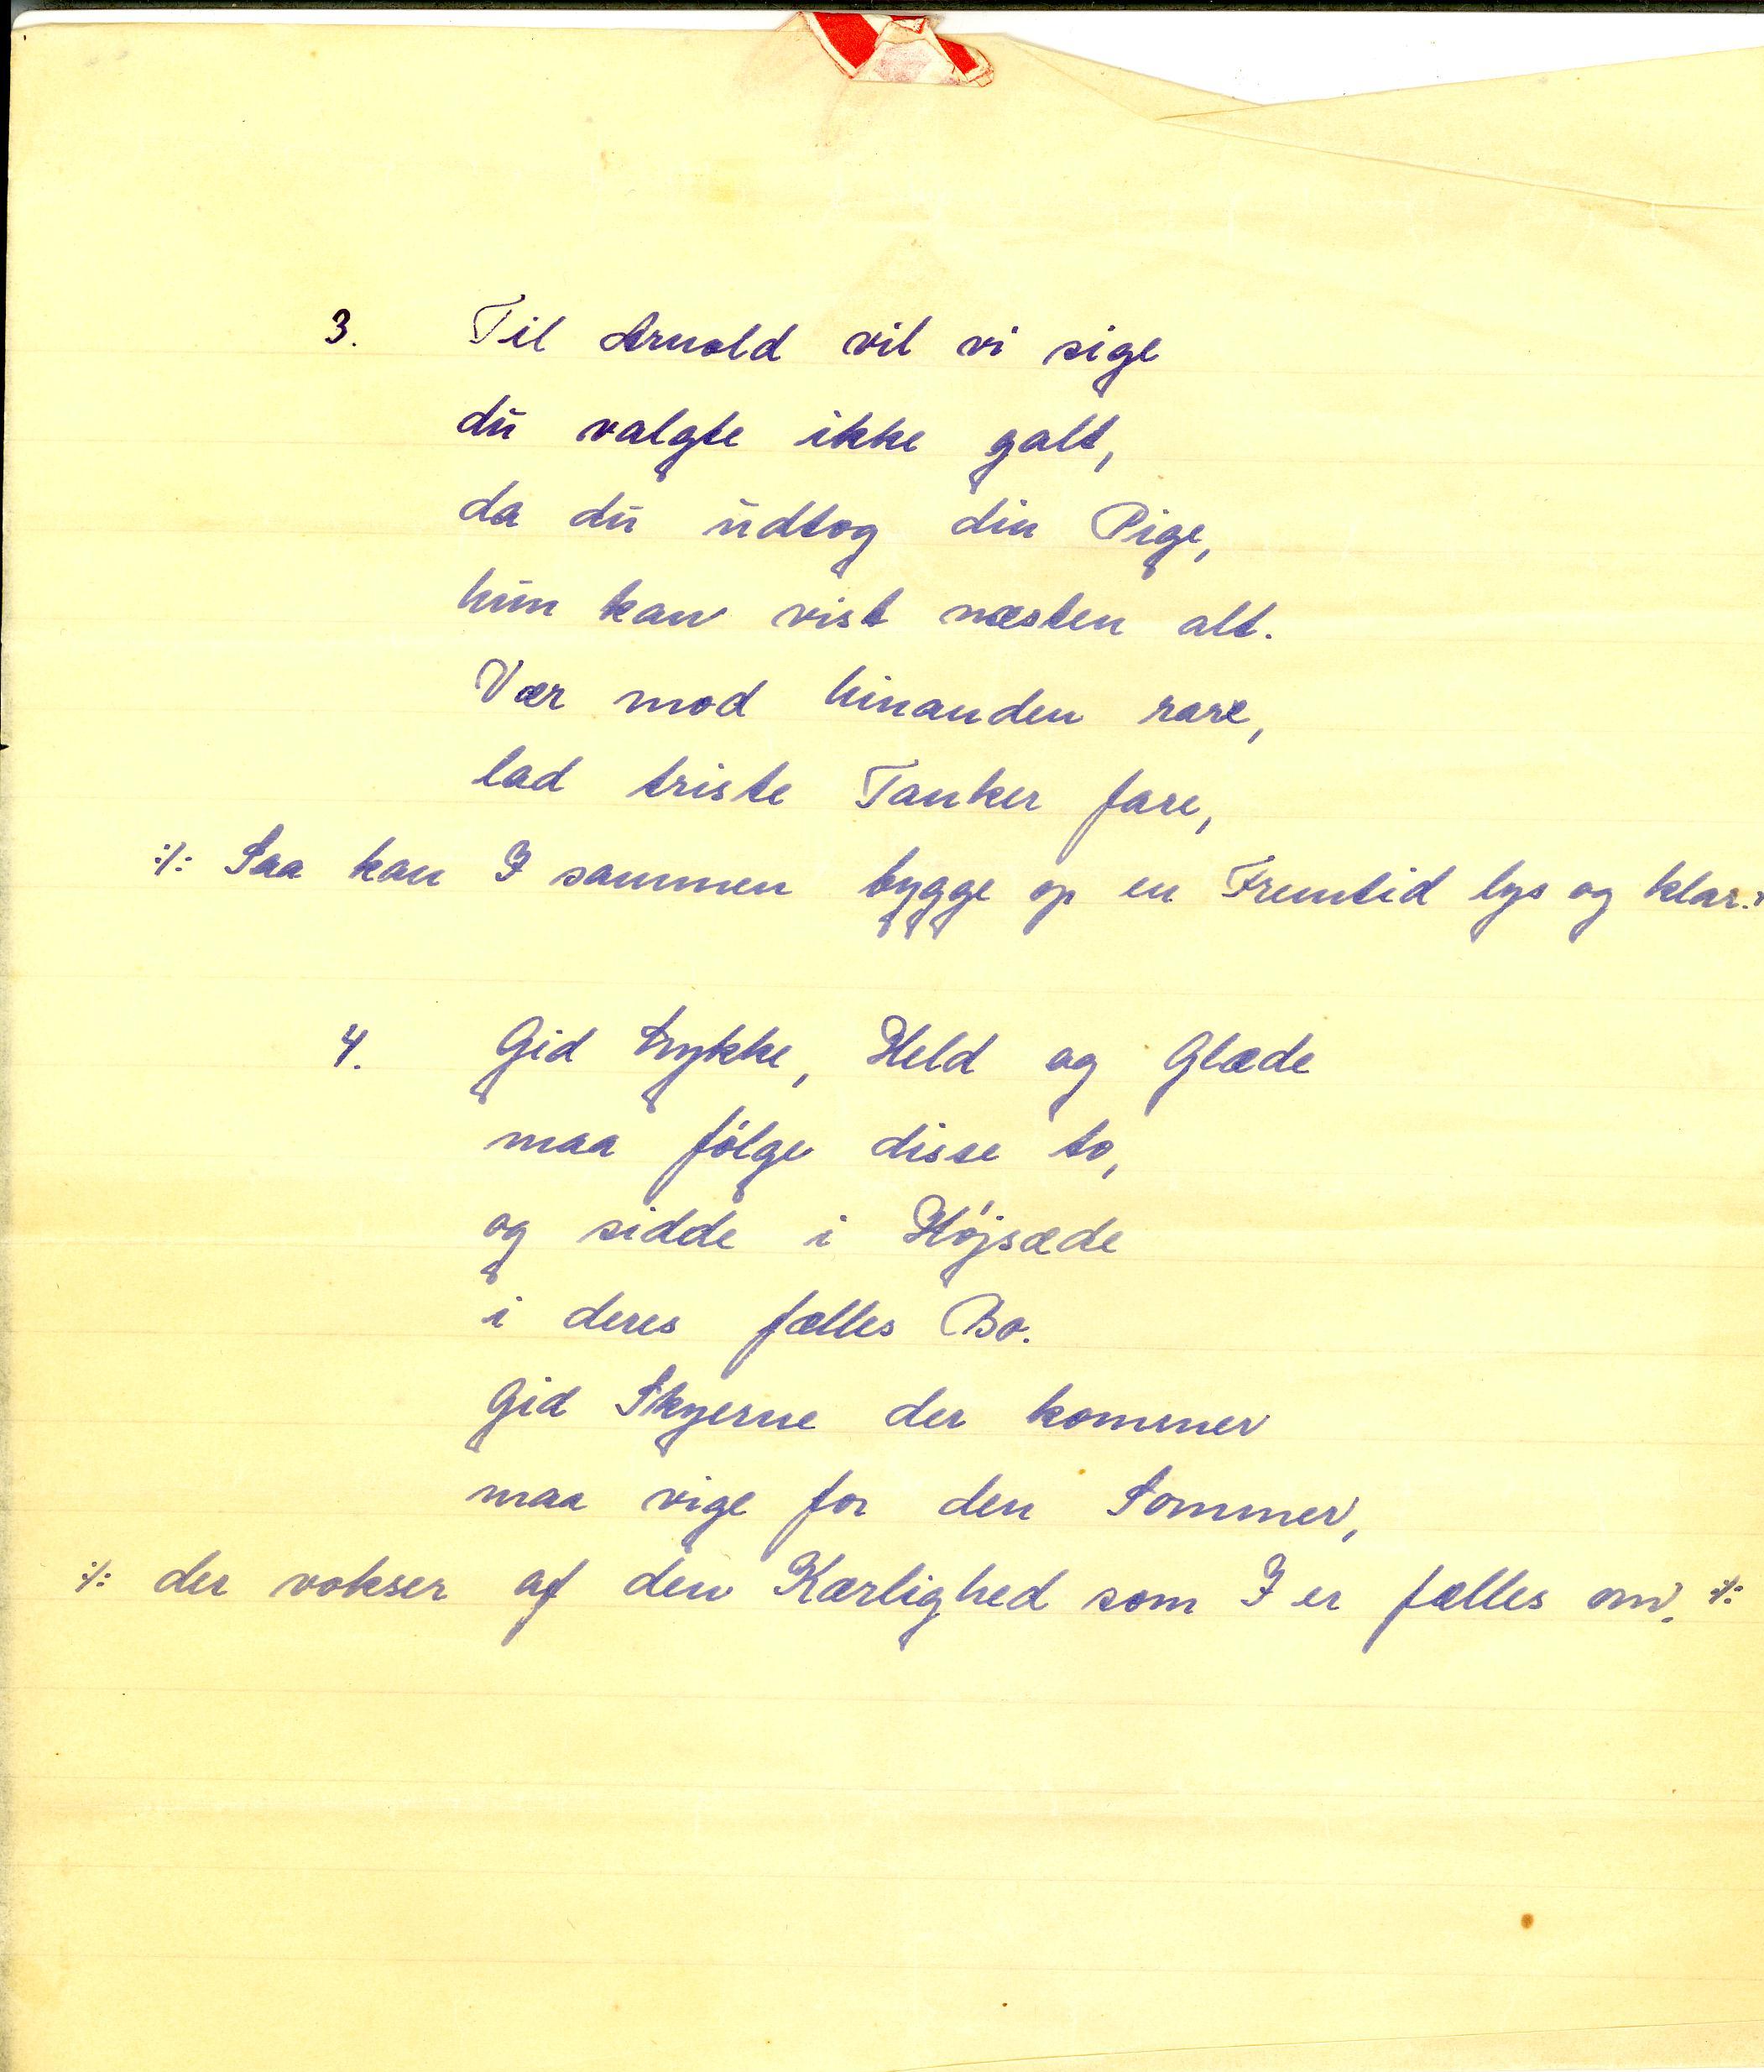 3. Til Arnold vil vi sige
du valgte ikke galt,
da du udtog din Pige,
hun kan vist næsten alt.
Vær mod hinanden rare,
lad triste Tanker fare,
:/: Saa kan I sammen bygge op en Fremtid lys og klar.:
4. Gid Lykke, Held og Glæde
maa følge disse to,
og sidde i Højsæde
i deres fælles Bo.
Gid Skyerne der kommer
maa vige for den Sommer,
:/: der vokser af den Kærlighed som I er fælles om. :/: